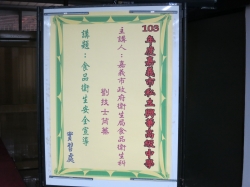 103年度嘉義市私立興華高級中學
主講人：嘉義市政府衛生局食品衛生科
劉技士
講題：食品衛生安全宣導
實習處